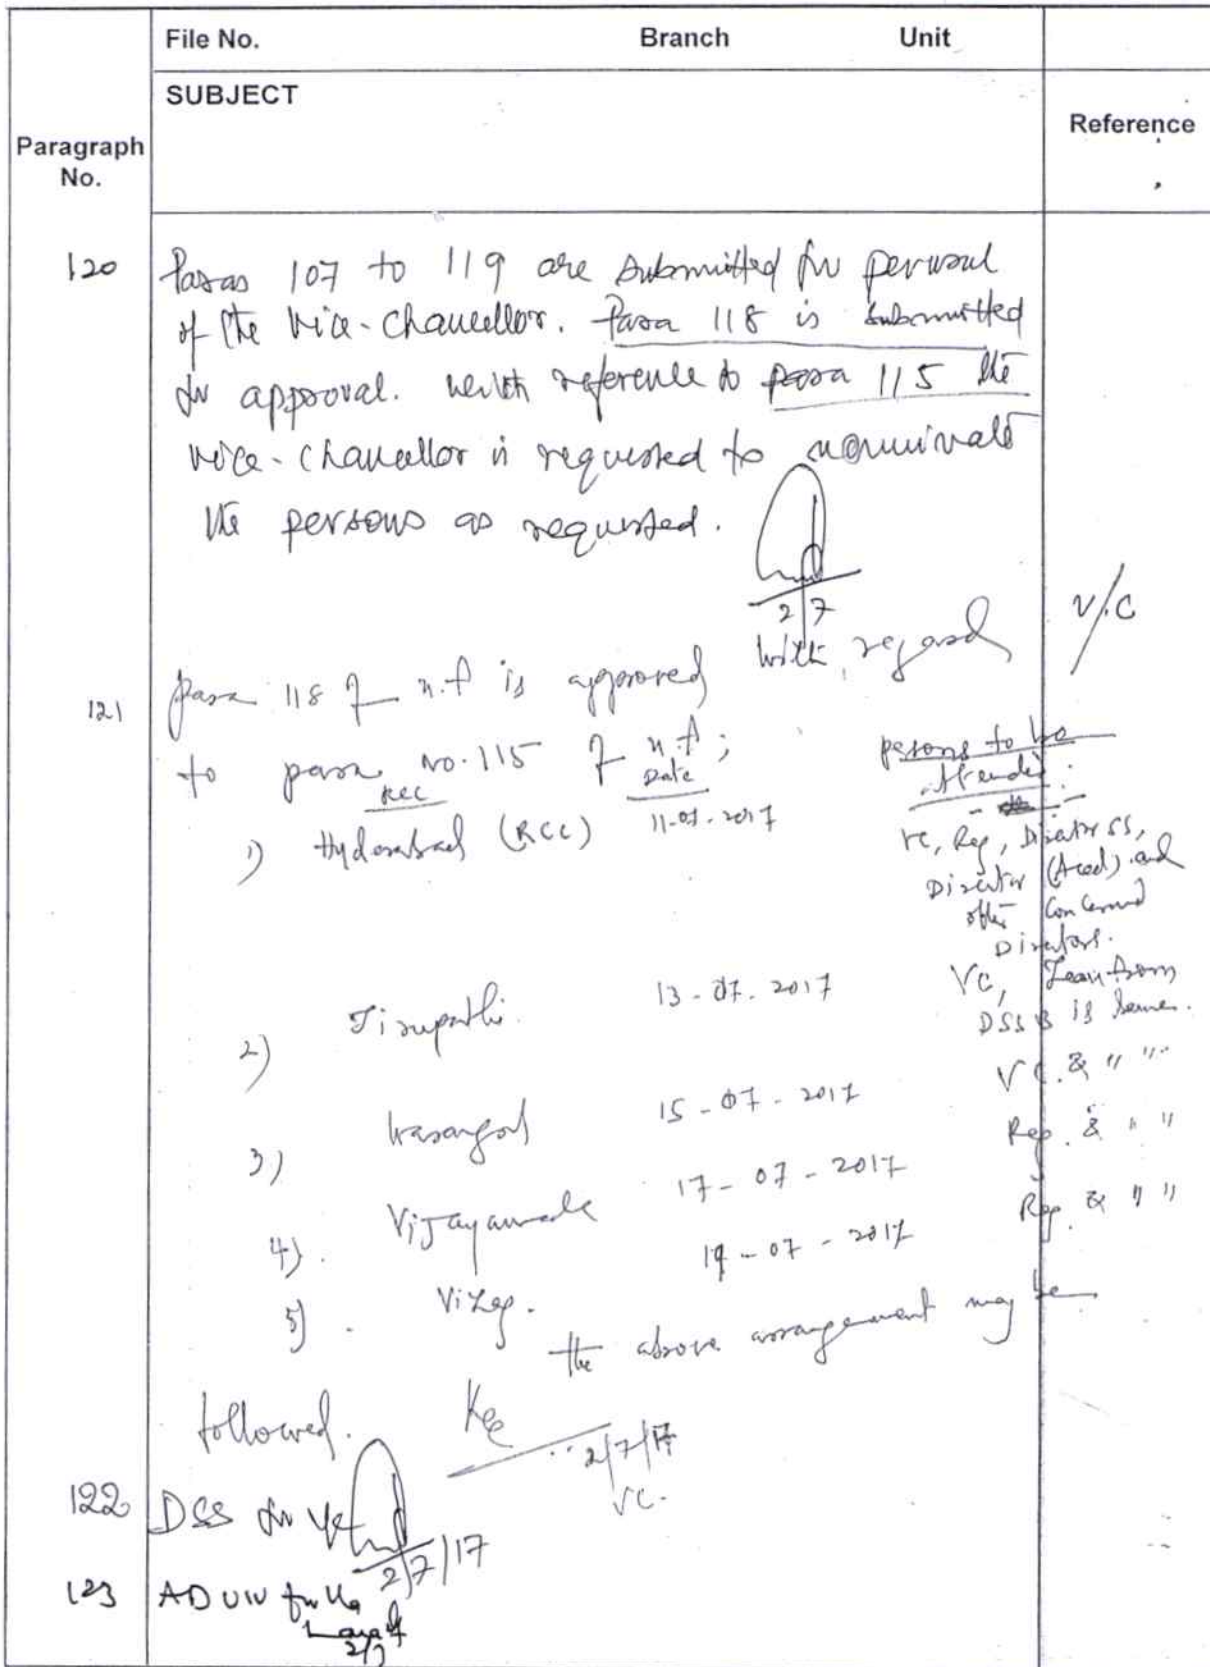 File No. Branch Unit
SUBJECT
Paragraph No.
Reference
120 Paras 107 to 119 are submitted for perusal
of the Vice-Chancellor. Para 118 is submitted
for approval. With reference to para 115 the
Vice-Chancellor is requested to nominate
the persons as requested.
2/7
V/C
121 para 118 of n.f is approved with regard
to para no. 115 of n.f;
Date
persons to be
attended.
1) Hyderabad (RCC) 11-07-2017
VC, Reg, Director SS,
Director (Acad) and
other Concerned
Directors.
2) Tirupathi. 13-07-2017
VC, Team from
DSS is same.
3) 15-07-2017 VC. & " "
4). Vijayawada 17-07-2017 Reg. & " "
5). Vizag. 19-07-2017 Reg. & " "
the above arrangement may be
followed.
2/7/17
VC.
122 DSS for
2/7/17
123 AD
2/7